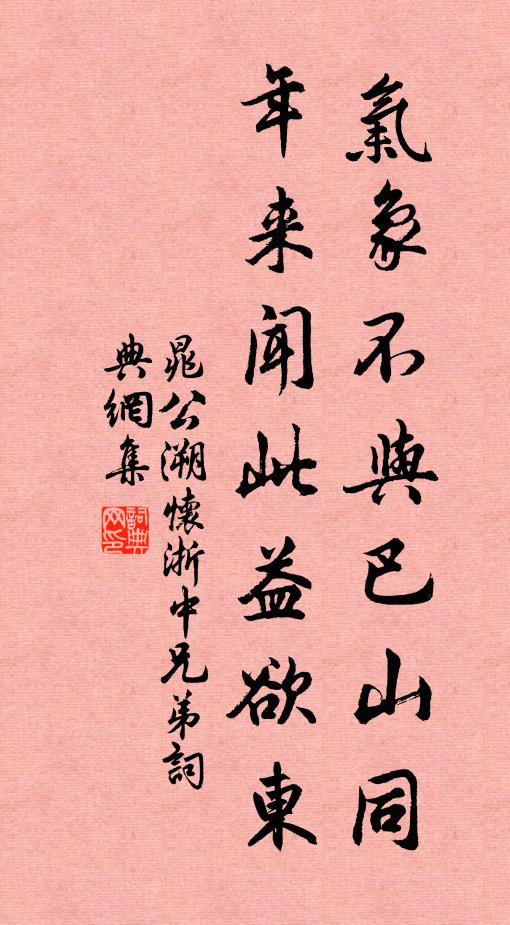 氣象不與巴山同
年来聞此益欲東
晁公溯懷浙中兄弟詞
典網集
詞典
网印